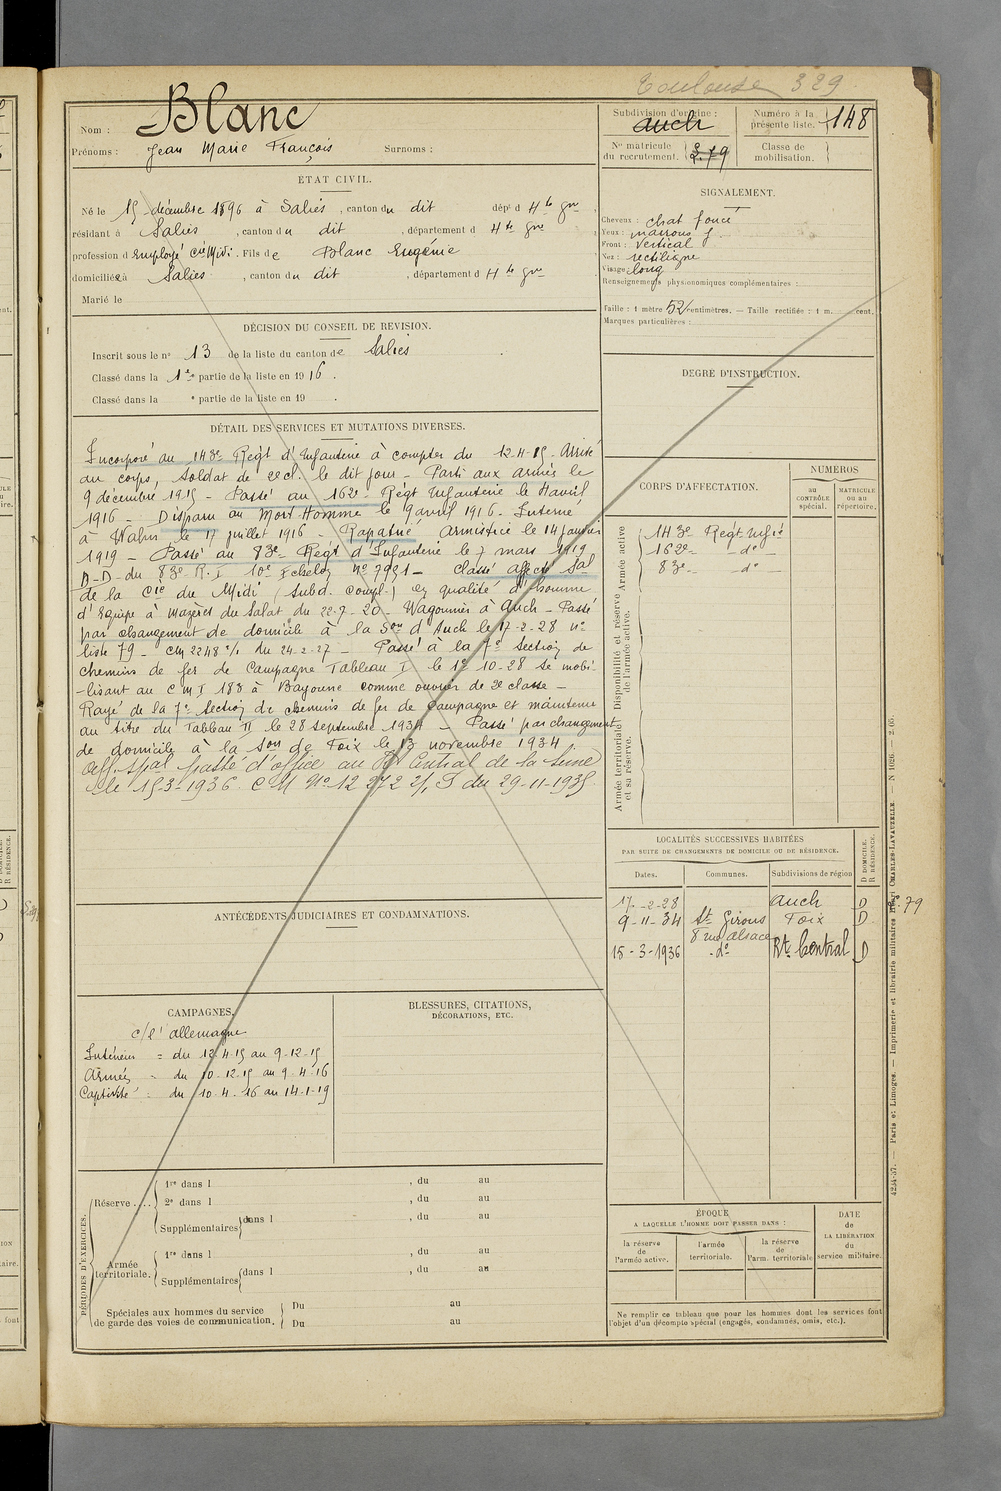 Toulouse 329
Nom : Blanc
Prénoms : Jean Marie François Surnoms :
Subdivision d'origine : Auch
Numéro à la présente liste. 148
Nº matricule du recrutement.
Classe de mobilisation.
ETAT CIVIL.
Né le 15 décembre 1896 à Salies, canton du dit dépt d Hte Gne,
résidant à Salies, canton du dit, département d Hte Gne
profession d Employé Cie Midi. Fils de Blanc Eugénie
domiciliée à Salies, canton du dit, département d Hte Gne
Marié le
SIGNALEMENT.
Cheveux : chat foncé
Yeux : marrons f
Front : Vertical
Nez : rectiligne
Visage : long
Renseignements physionomiques complémentaires :
Taille : 1 mètre 52 centimètres. — Taille rectifiée : 1 m. cent.
Marques particulières :
DÉCISION DU CONSEIL DE REVISION.
Inscrit sous le nº 13 de la liste du canton de Salies
Classé dans la 1re partie de la liste en 1916.
Classé dans la e partie de la liste en 19 .
DEGRÉ D'INSTRUCTION.
DÉTAIL DES SERVICES ET MUTATIONS DIVERSES.
Incorporé au 143e Régt d'Infanterie à compter du 12-4-15. Arrivé
au corps, Soldat de 2e cl. le dit jour - Parti aux armées le
9 décembre 1915 - Passé au 162e Régt Infanterie le 4 avril
1916 - Disparu au Mort Homme le 9 avril 1916. Interné
à Wahn le 17 juillet 1916 - Rapatrié Armistice le 14 Janvier
1919 - Passé au 83e Régt d'Infanterie le 7 mars 1919
D-D- du 83e R.I 10e Echelon Nº 7931 - Classé affecté Sal
de la Cie du Midi (Subd. Compl.) en qualité d'homme
d'équipe à Mazères du Salat du 22-7-20 - Wagonnier à Auch - Passé
par changement de domicile à la Son d'Auch le 17-2-28 nº
liste 79 - CM 2248 % du 24-2-27 - Passé à la 7e Section de
chemins de fer de Campagne Tableau I le 1er 10-28 se mobi-
-lisant au C M I 183 à Bayonne comme ouvrier de 2e classe -
Rayé de la 7e Section de chemins de fer de campagne et maintenu
au titre du Tableau II le 28 septembre 1934 - Passé par changement
de domicile à la Son de Foix le 13 novembre 1934.
Aff. spal passé d'office au Rt Central de la Seine
le 15-3-1936. C M Nº 12 272 2/, S du 29-11-1935
CORPS D'AFFECTATION.
NUMEROS
AU CONTRÔLE spécial.
MATRICULE OU AU répertoire.
Disponibilité et réserve de l'armée active. Armée active
Armée territoriale et sa réserve.
143e Régt Infie
162e - do -
83e - do -
LOCALITÉS SUCCESSIVES HABITÉES
PAR SUITE DE CHANGEMENTS DE DOMICILE OU DE RÉSIDENCE.
D DOMICILE. R RÉSIDENCE.
Dates. Communes. Subdivisions de région
17-2-28 Auch D nº 79
9-11-34 St Girons Foix D
8 rue Alsace
15-3-1936 do Rt Central D
ANTÉCÉDENTS JUDICIAIRES ET CONDAMNATIONS.
CAMPAGNES.
c/ l'allemagne
Intérieur = du 12-4-15 au 9-12-15
Armées - du 10-12-15 au 9-4-16
Captivité = du 10-4-16 au 14-1-19
BLESSURES, CITATIONS,
DÉCORATIONS, ETC.
PÉRIODES D'EXERCICES.
Réserve ....
1re dans l , du au
2e dans l , du au
Supplémentaires dans l , du au
Armée territoriale.
1re dans l , du au
Supplémentaires dans l , du au
Spéciales aux hommes du service
de garde des voies de communication.
Du au
Du au
ÉPOQUE
A LAQUELLE L'HOMME DOIT PASSER DANS :
la réserve de l'armée active.
l'armée territoriale.
la réserve de l'arm. territoriale.
DATE de LA LIBÉRATION du service militaire.
Ne remplir ce tableau que pour les hommes dont les services font
l'objet d'un décompte spécial (engagés, condamnés, omis, etc.).
4234-37. — Paris et Limoges. — Imprimerie et librairie militaires Henri CHARLES-LAVAUZELLE. —